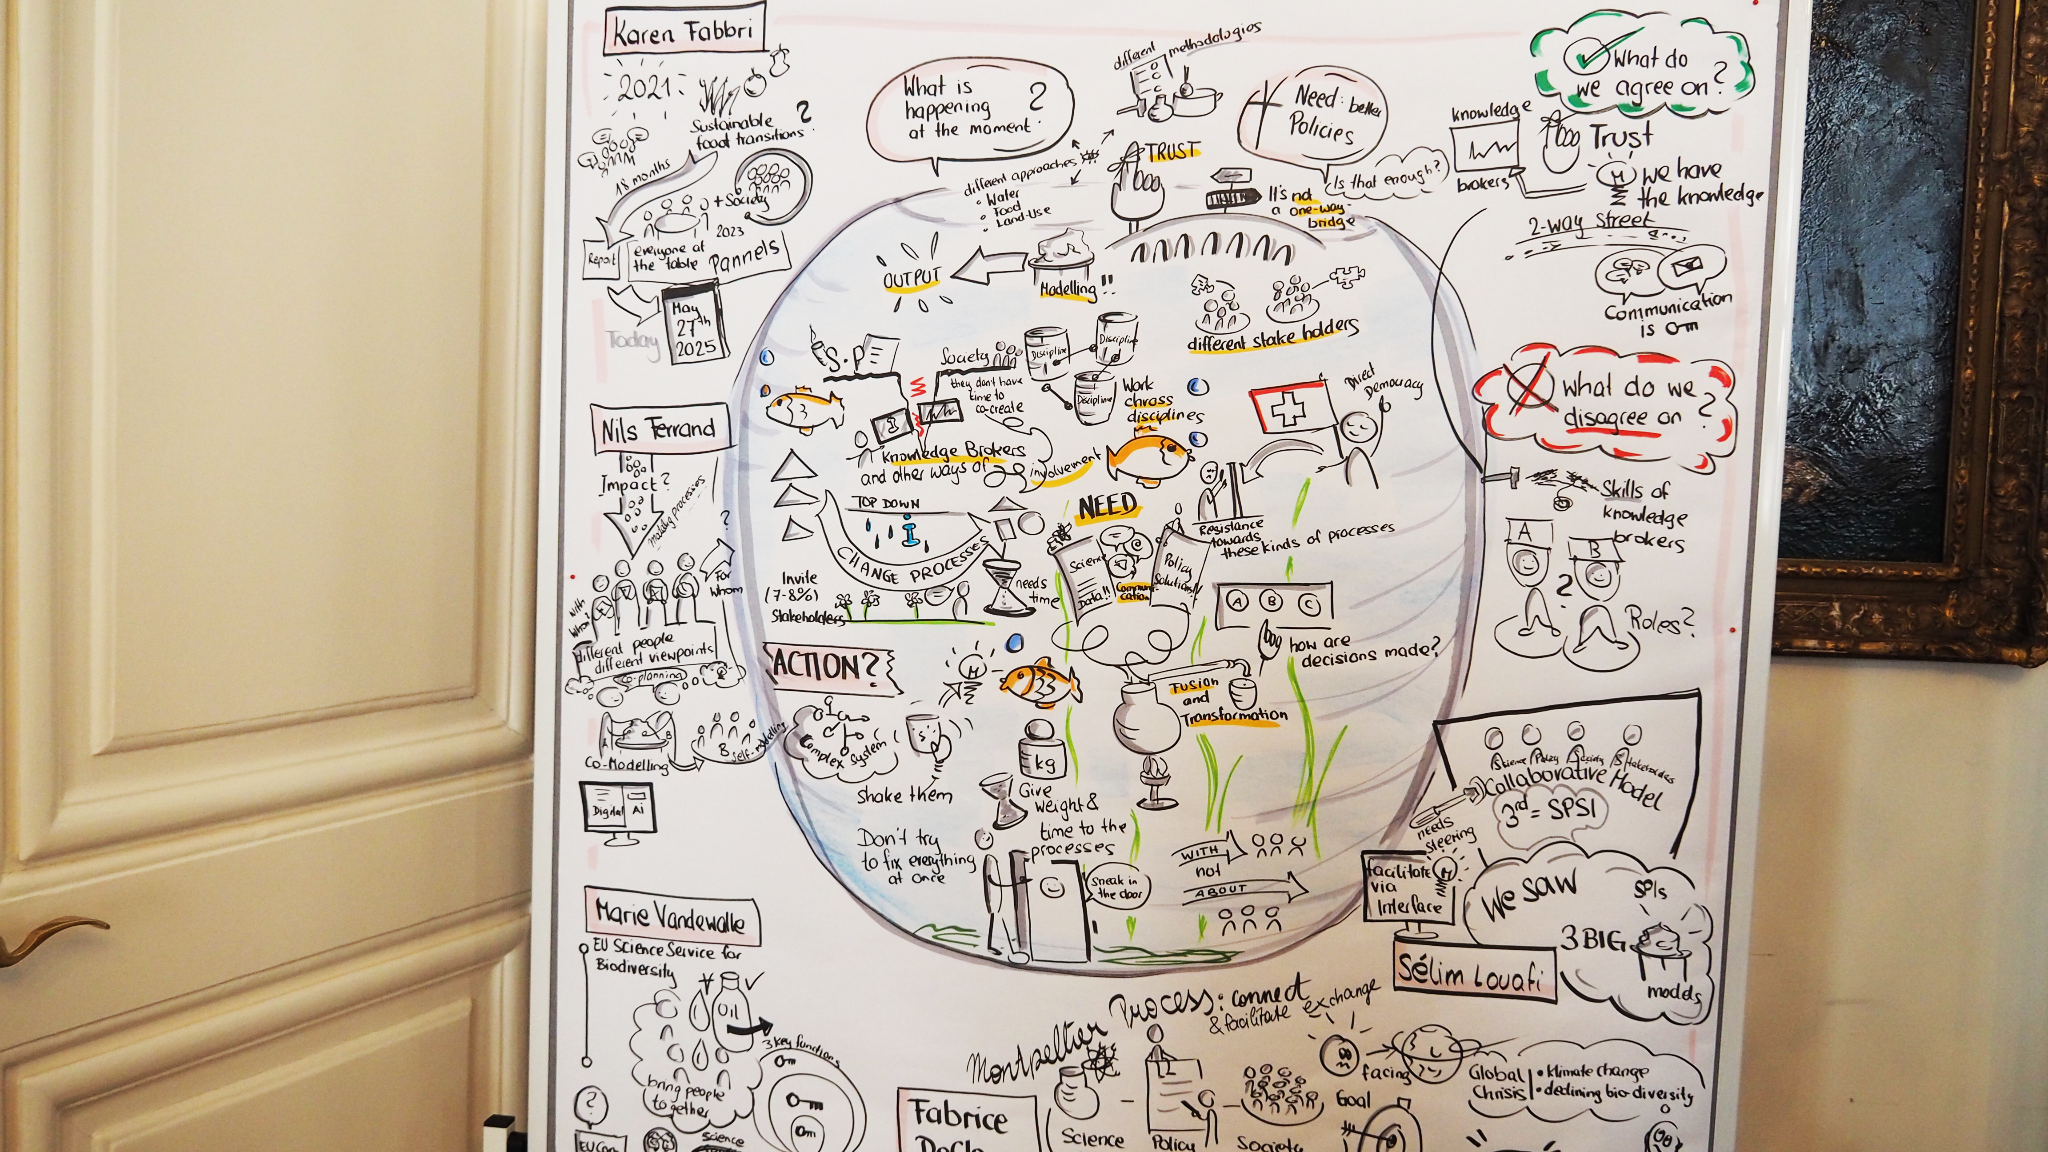 Karen Fabbri
2021
Sustainable
food transitions ?
18 months
+ Society
2023
Report
everyone at
the table
Pannels
Today
May
27th
2025
Nils Ferrand
Impact?
For
Whom
?
with
whom
different people
different viewpoints
co-planning
A
B
Co-Modelling
self-modelling
Digital
Ai
Marie Vandewalle
EU Science Service for
Biodiversity
Oil
3 key functions
bring people
together
?
science
What is
happening
at the moment ?
different methodologies
TRUST
different approaches
• Water
• Food
• Land-Use
Need: better
Policies
Is that enough?
It's not
a one-way-
bridge
OUTPUT
Modelling !!
different stake holders
S.P
Society
they don't have
time to
co-create
Discipline
Discipline
Discipline
Work
chross
disciplines
Direct
Democracy
Knowledge Brokers
and other ways of
involvement
TOP DOWN
CHANGE PROCESSES
Invite
(7-8%)
Stakeholders
needs
time
NEED
Science
Data!!
Communi-
cation
Policy
Solutions!!
Resistance
towards
these kinds of processes
A B C
how are
decisions made?
ACTION?
Complex system
Shake them
Don't try
to fix everything
at once
kg
Give
weight &
time to the
processes
Sneak in
the door
Fusion
and
Transformation
WITH
not
ABOUT
What do
we agree on?
knowledge
brokers
Trust
we have
the knowledge
2-way street
Communication
is
What do we
disagree on ?
Skills of
knowledge
brokers
A
B
?
Roles?
Science Policy Society Stakeholders
Collaborative Model
3rd = SPSI
needs
steering
facilitate
via
Interface
We saw
3 BIG
SPIs
models
Sélim Louafi
Montpellier Process: connect
& facilitate exchange
Fabrice
Science
Policy
Society
facing
Goal
Global
Chrisis
• klimate change
• declining bio-diversity